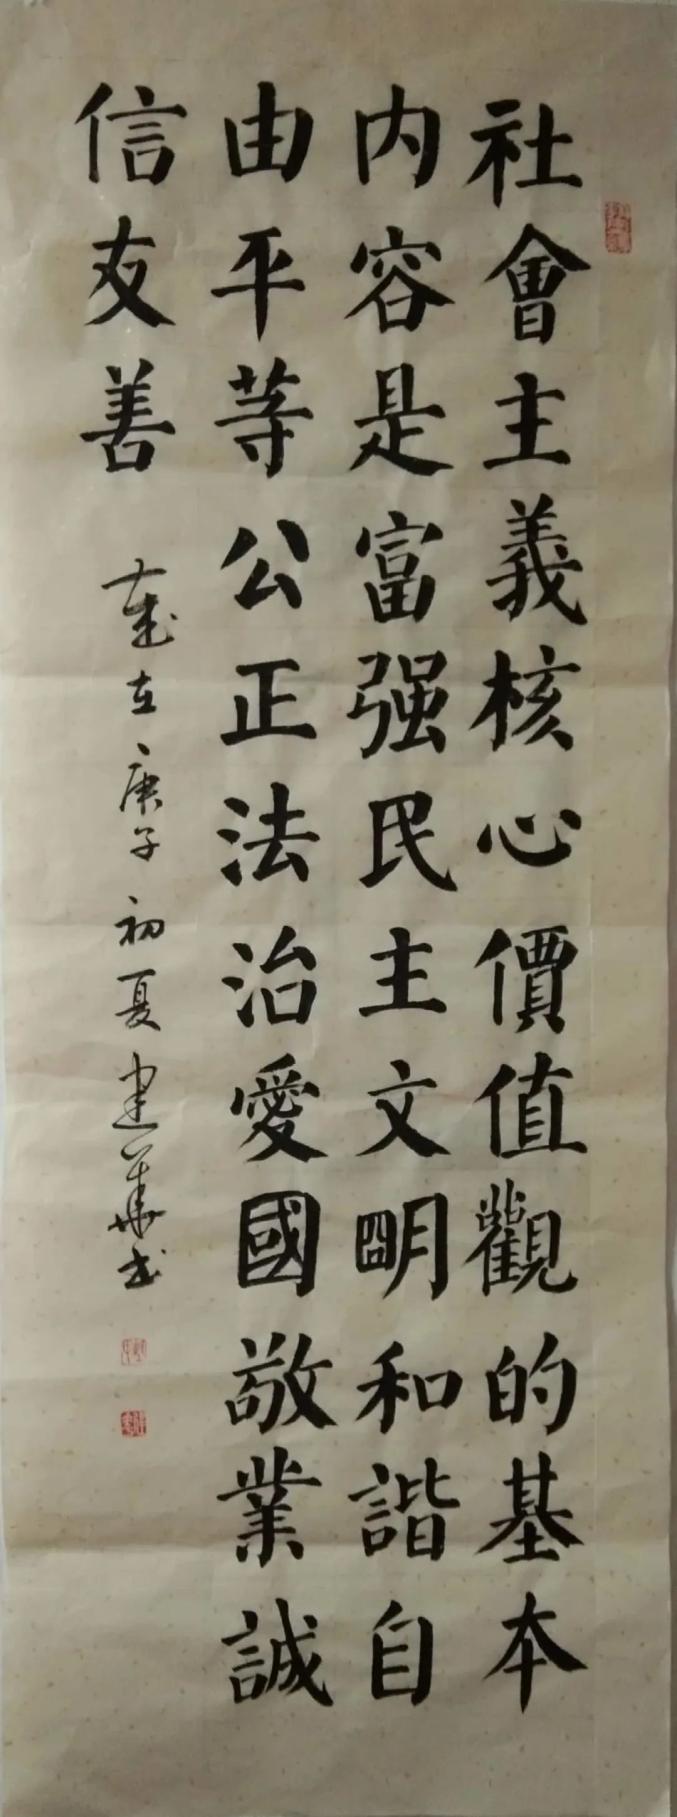 社會主義核心價值觀的基本
内容是富强民主文明和諧自
由平等公正法治愛國敬業誠
信友善
歲在庚子初夏建華书